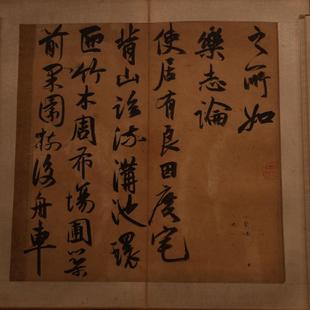 之所如
樂志論
使居有良田廣宅
背山臨流溝池環
匝竹木周布場圃築
前果園樹後舟車